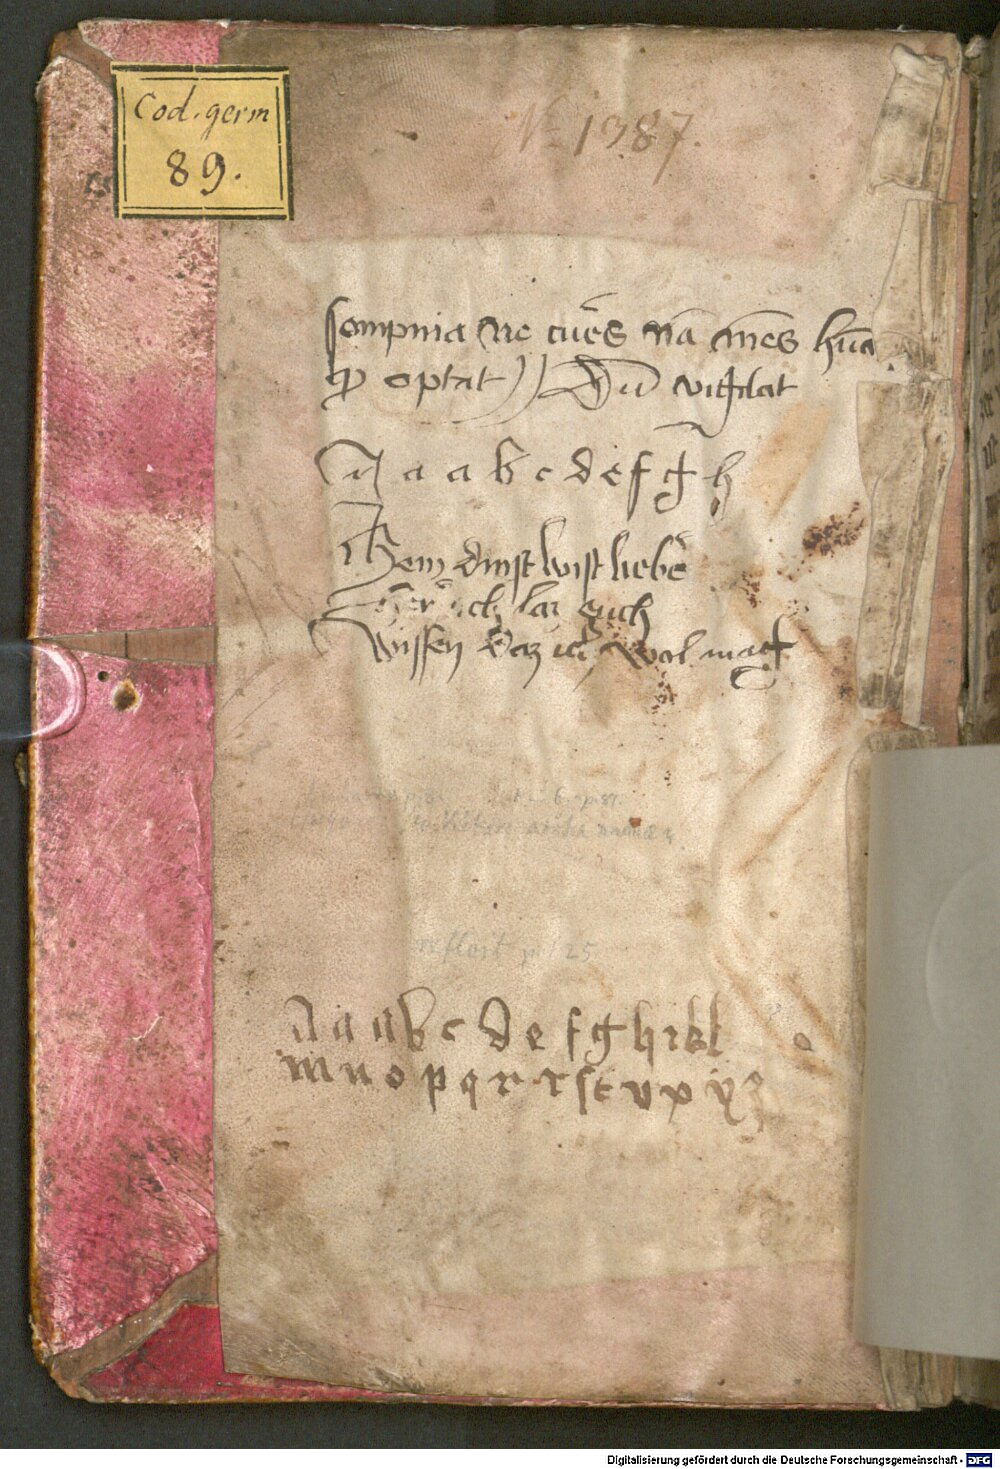 Cod. germ
89.
N 1387.
sompnia ne cures nā mēs hūa
ꝙ optat Dū vigilat
A a a b c d e f g h
Mein dinst wist lieber
Her ich laz euch
wissen daz ich wol mag
p. 125
A a a b c d e f g h i k l
m n o p q r r s t v x y z
Digitalisierung gefördert durch die Deutsche Forschungsgemeinschaft - DFG